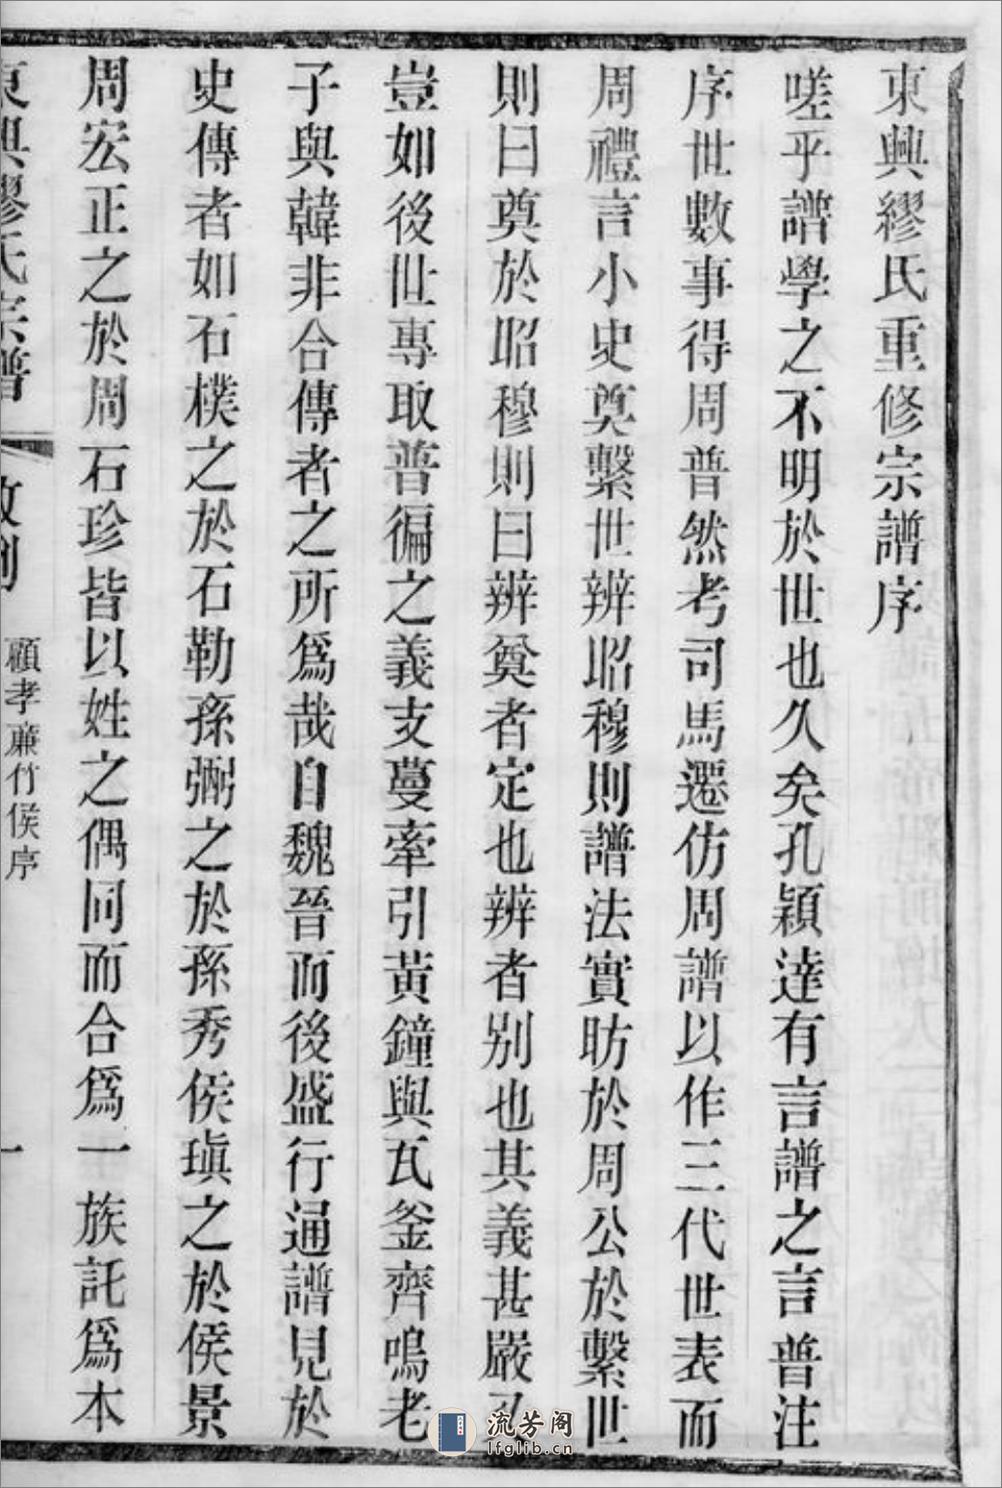 東興繆氏重修宗譜序
嗟乎譜學之不明於世也久矣孔穎達有言譜之言普注
序世數事得周普然考司馬遷仿周譜以作三代世表而
周禮言小史奠繫世辨昭穆則譜法實昉於周公於繫世
則曰奠於昭穆則曰辨奠者定也辨者别也其義甚嚴
豈如後世專取普徧之義支蔓牽引黃鐘與瓦釜齊鳴老
子與韓非合傳者之所爲哉自魏晉而後盛行通譜見於
史傳者如石樸之於石勒孫弼之於孫秀侯瑱之於侯景
周宏正之於周石珍皆以姓之偶同而合爲一族託爲本
東興繆氏宗譜
顧孝廉竹侯序
一
流芳阁
lfglib.cn